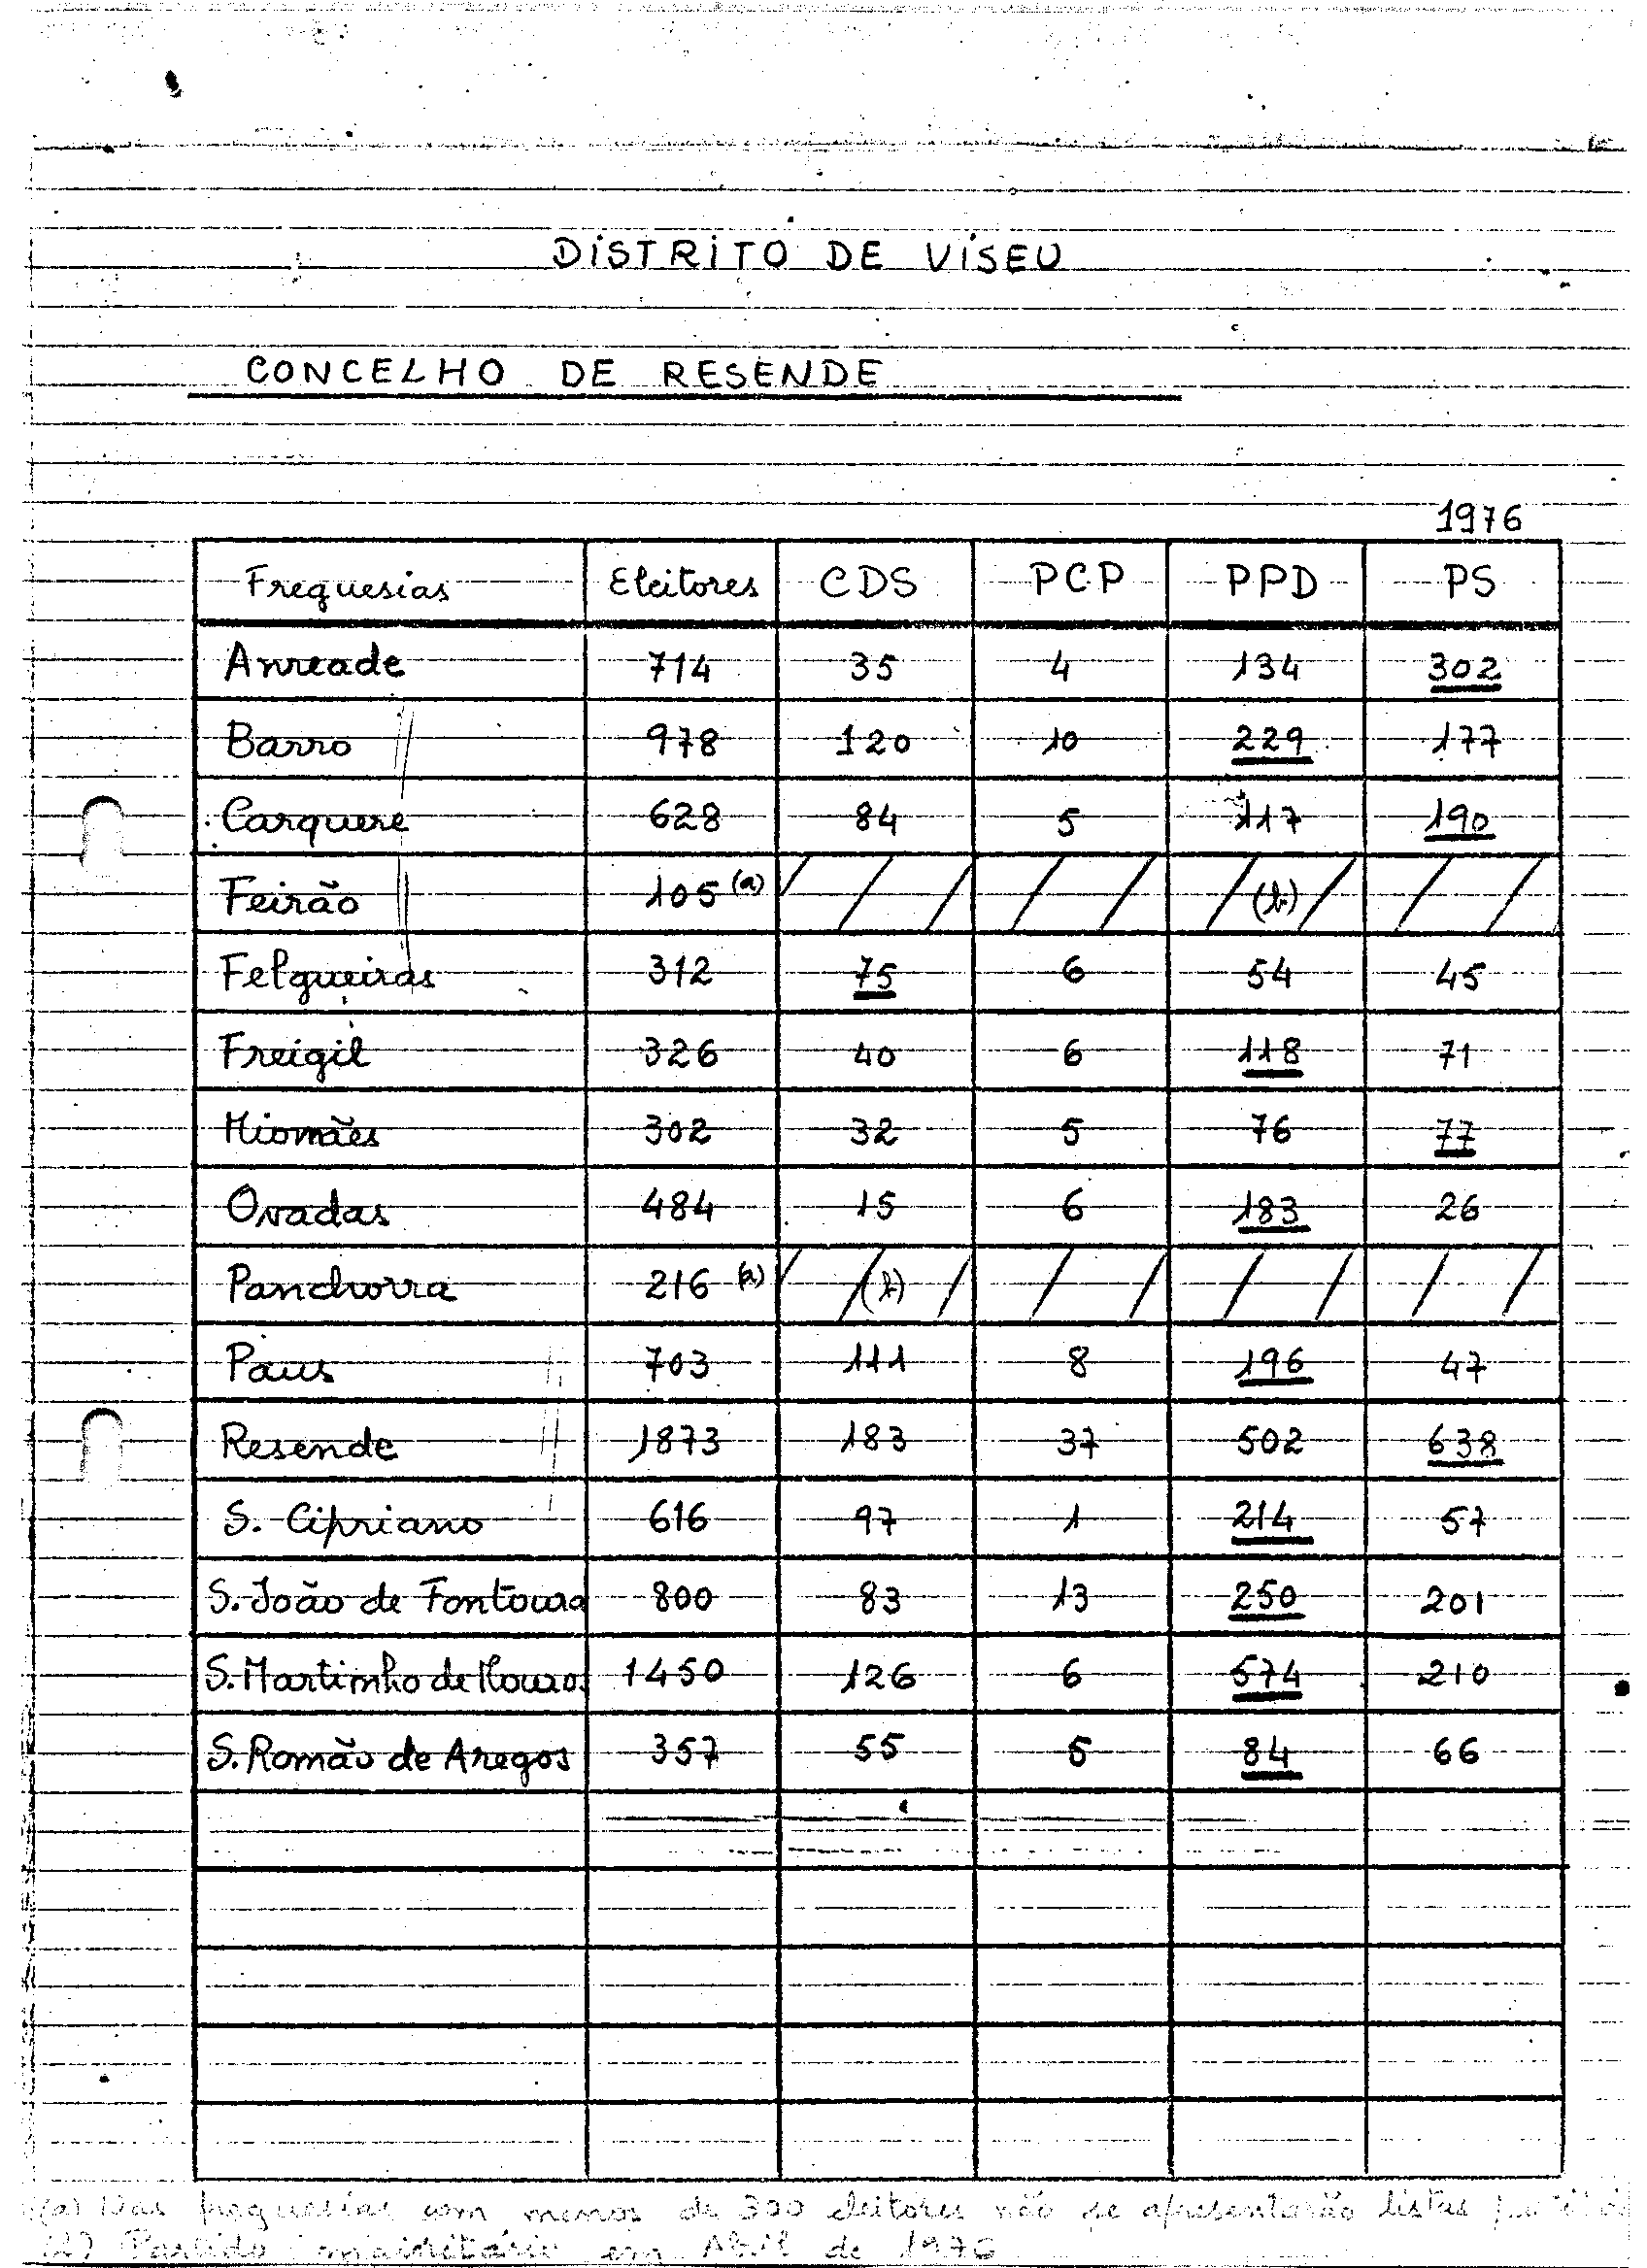 DISTRITO DE VISEU
CONCELHO DE RESENDE
1976
Freguesias Eleitores CDS PCP PPD PS
Anreade 714 35 4 134 302
Barro 978 120 10 229 177
Carquere 628 84 5 117 190
Feirão 105 (a) (b)
Felgueiras 312 75 6 54 45
Freigil 326 40 6 118 71
Miomães 302 32 5 76 77
Ovadas 484 15 6 183 26
Panchorra 216 (a) (b)
Paus 703 111 8 196 47
Resende 1873 183 37 502 638
S. Cipriano 616 97 1 214 57
S. João de Fontoura 800 83 13 250 201
S. Martinho de Mouros 1450 126 6 574 210
S. Romão de Aregos 357 55 5 84 66
(a) Nas freguesias com menos de 300 eleitores não se apresentarão listas
(b) Partido maioritário em Abril de 1976